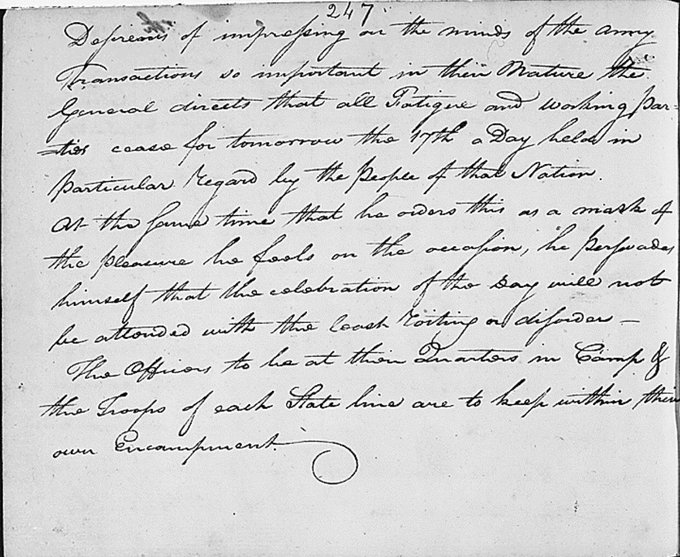 247
Desireous of impressing on the minds of the army
Transactions so important in their Nature the
General directs that all Fatigue and working par-
ties cease for tomorrow the 17th a Day held in
particular Regard by the People of that Nation.
At the same time that he orders this as a mark of
the pleasure he feels on the occasion, he perswades
himself that the celebration of the Day will not
be attended with the least rioting or disorder —
The Officers to be at their Quarters in Camp &
the Troops of each State line are to keep within their
own Encampment.